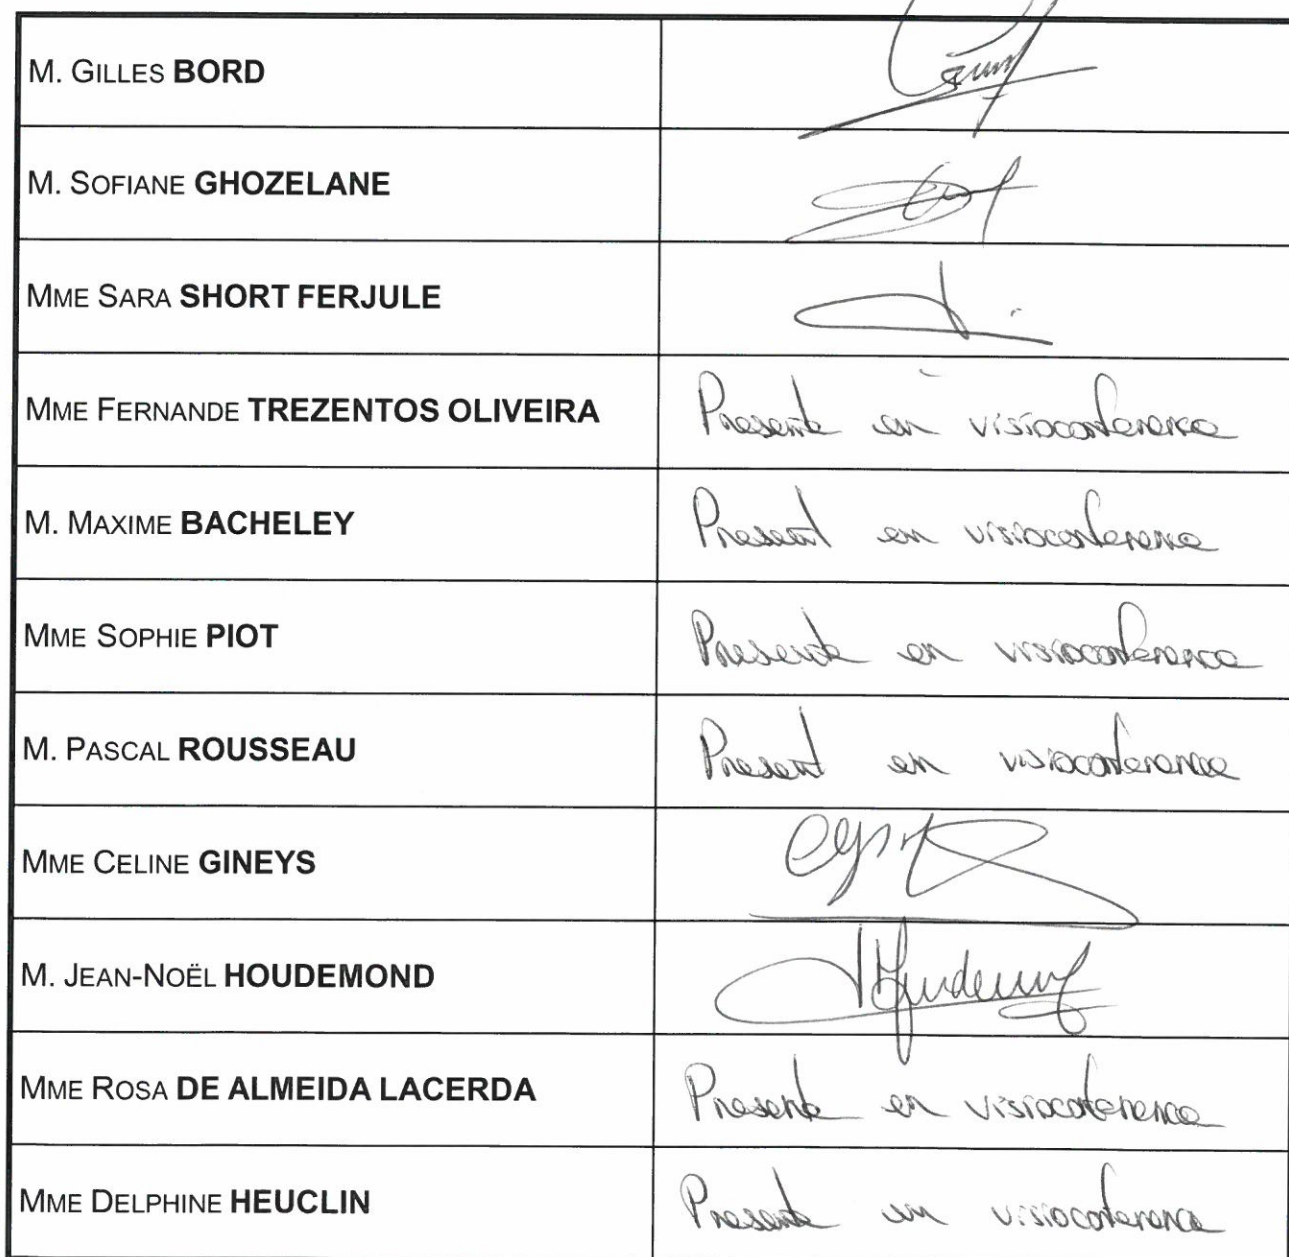 M. GILLES BORD
M. SOFIANE GHOZELANE
MME SARA SHORT FERJULE
MME FERNANDE TREZENTOS OLIVEIRA Presente en visioconference
M. MAXIME BACHELEY Present en visioconference
MME SOPHIE PIOT Presente en visioconference
M. PASCAL ROUSSEAU Present en visioconference
MME CELINE GINEYS
M. JEAN-NOËL HOUDEMOND
MME ROSA DE ALMEIDA LACERDA Presente en visioconference
MME DELPHINE HEUCLIN Presente en visioconference